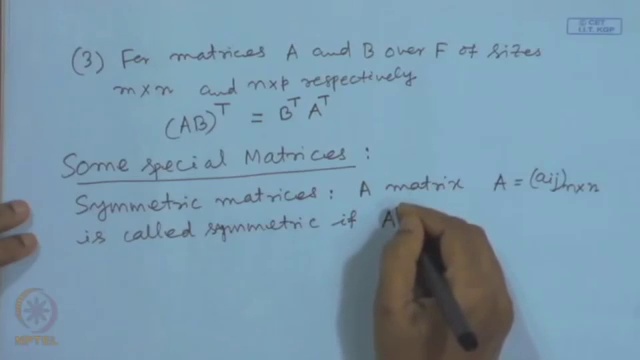 © CET
I.I.T. KGP
(3) For matrices A and B over F of sizes
m×n and n×p respectively
(AB)^T = B^T A^T
Some special Matrices :
Symmetric matrices : A matrix A = (aij)n×n
is called symmetric if A
NPTEL